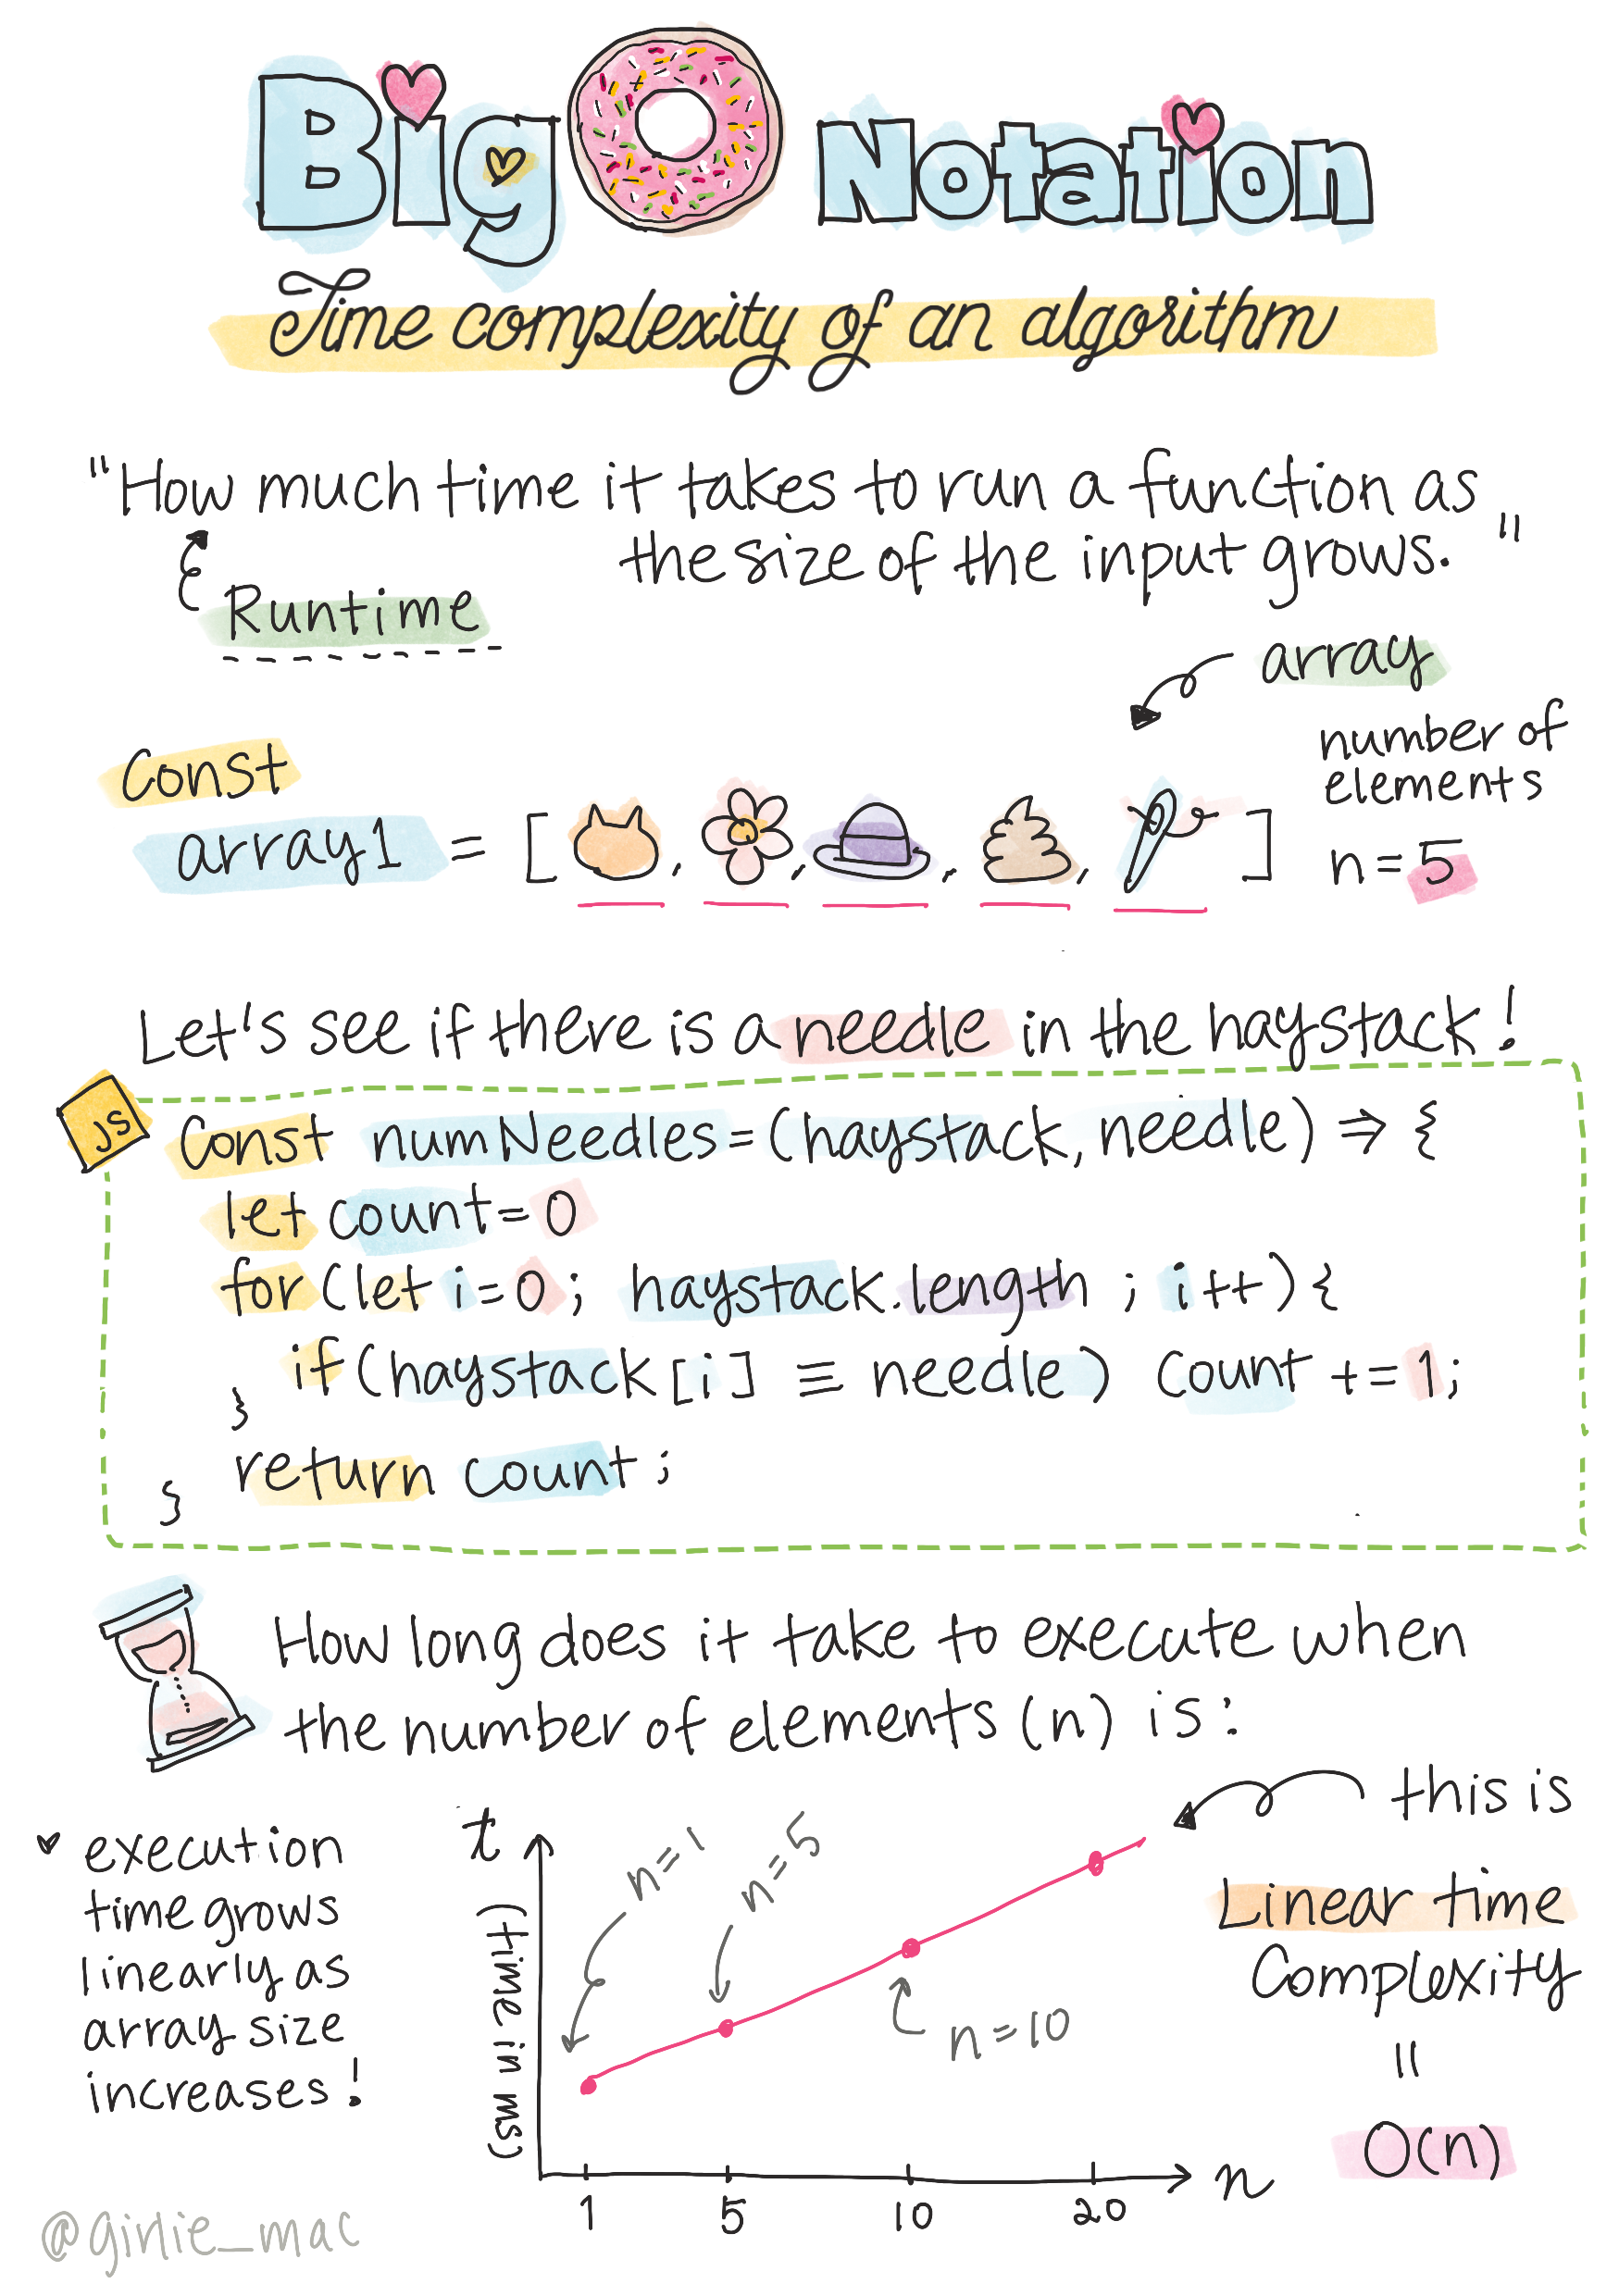 Big O Notation
Time complexity of an algorithm
"How much time it takes to run a function as
the size of the input grows."
Runtime
array
Const
array1 = [ , , , , ]
number of
elements
n = 5
Let's see if there is a needle in the haystack!
JS
Const numNeedles = (haystack, needle) ⇒ {
let count = 0
for (let i = 0 ; haystack.length ; i++) {
if (haystack [i] ≡ needle) Count += 1;
}
return count ;
}
How long does it take to execute when
the number of elements (n) is :
this is
Linear time
Complexity
=
O(n)
execution
time grows
linearly as
array size
increases!
t
(time in ms)
n=1
n=5
n=10
1 5 10 20
n
@girlie_mac